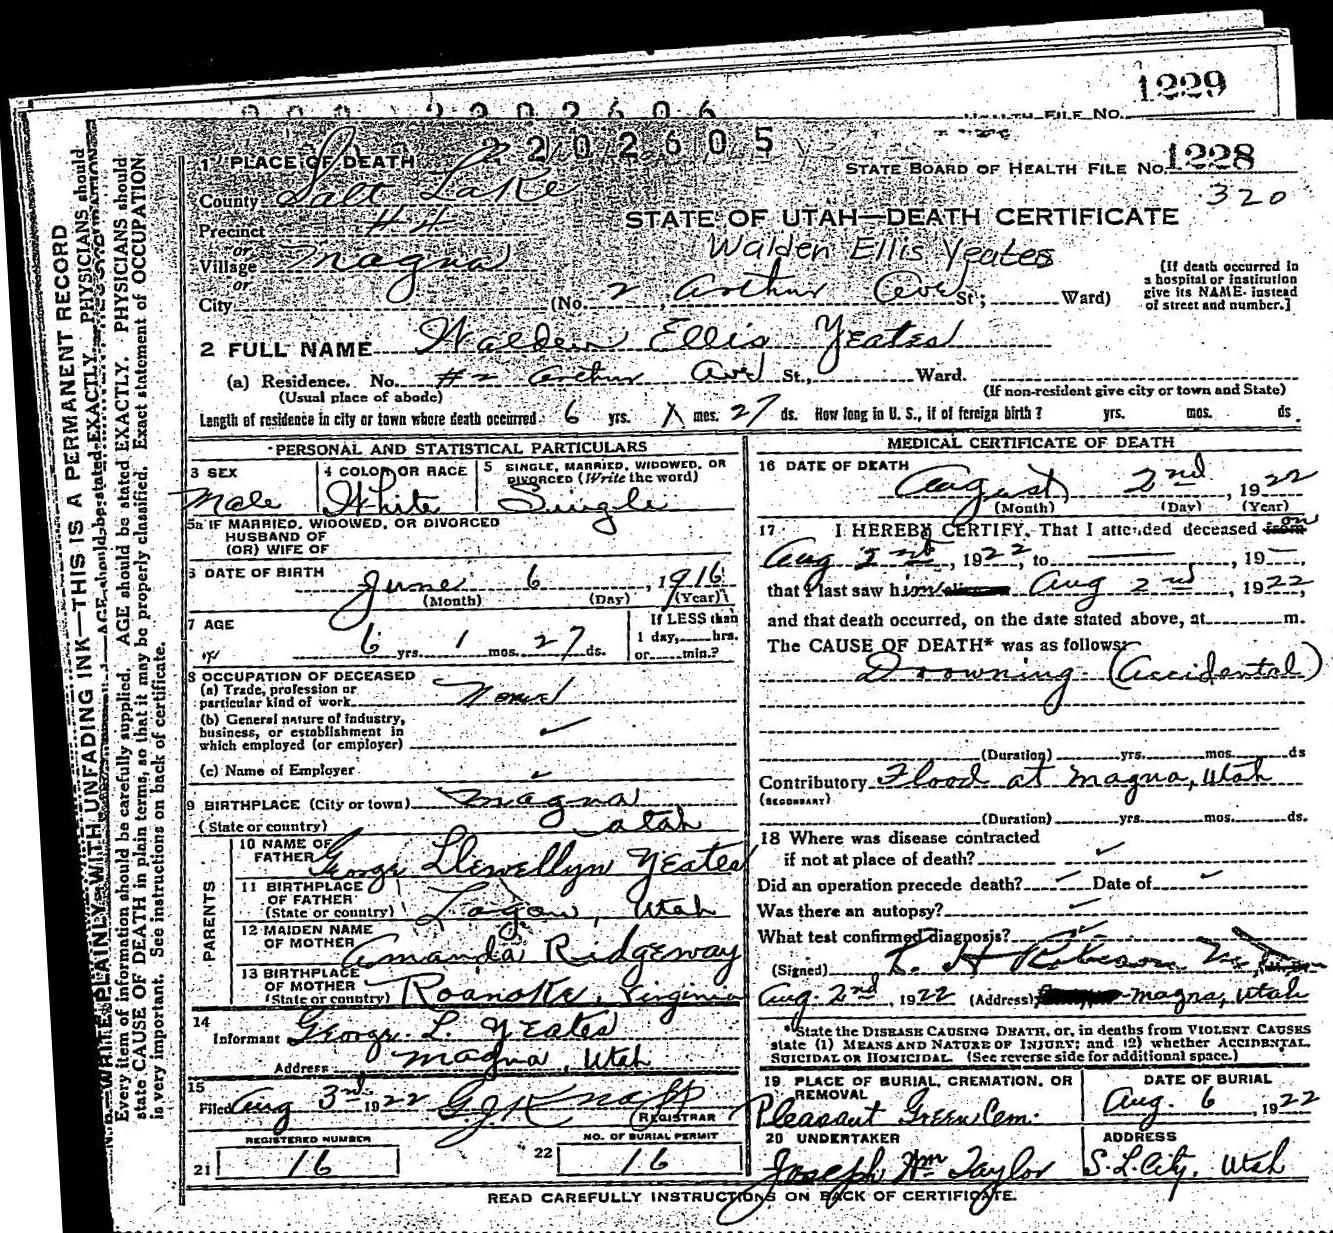 1229
HEALTH FILE NO.
2202606
2202605
STATE BOARD OF HEALTH FILE NO. 1228
320
1 PLACE OF DEATH
County Salt Lake
Precinct #4
or
Village Magna
or
City
STATE OF UTAH—DEATH CERTIFICATE
Walden Ellis Yeates
(No. 2, Arthur Ave St; Ward)
[If death occurred in
a hospital or institution
give its NAME instead
of street and number.]
2 FULL NAME Walden Ellis Yeates
(a) Residence. No. #2 Arthur Ave St., Ward.
(Usual place of abode)
(If non-resident give city or town and State)
Length of residence in city or town where death occurred 6 yrs. 1 mos. 27 ds. How long in U. S., if of foreign birth? yrs. mos. ds
PERSONAL AND STATISTICAL PARTICULARS
3 SEX
Male
4 COLOR OR RACE
White
5 SINGLE, MARRIED, WIDOWED, OR
DIVORCED (Write the word)
Single
5a IF MARRIED, WIDOWED, OR DIVORCED
HUSBAND OF
(OR) WIFE OF
6 DATE OF BIRTH
June 6, 1916
(Month) (Day) (Year)
7 AGE
6 yrs. 1 mos. 27 ds.
If LESS than
1 day, hrs.
or min.?
8 OCCUPATION OF DECEASED
(a) Trade, profession or
particular kind of work None
(b) General nature of industry,
business, or establishment in
which employed (or employer)
(c) Name of Employer
9 BIRTHPLACE (City or town) Magna
(State or country) Utah
PARENTS
10 NAME OF
FATHER George Llewellyn Yeates
11 BIRTHPLACE
OF FATHER
(State or country) Logan, Utah
12 MAIDEN NAME
OF MOTHER Amanda Ridgeway
13 BIRTHPLACE
OF MOTHER
(State or country) Roanoke, Virginia
14
Informant George L. Yeates
Address Magna, Utah
15
Filed Aug 3rd 1922 G.J. Knapp
REGISTRAR
REGISTERED NUMBER
21 16
NO. OF BURIAL PERMIT
22 16
MEDICAL CERTIFICATE OF DEATH
16 DATE OF DEATH
August 2nd, 1922
(Month) (Day) (Year)
17 I HEREBY CERTIFY, That I attended deceased from on
Aug 2nd, 1922, to , 19
that I last saw him alive on Aug 2nd, 1922,
and that death occurred, on the date stated above, at m.
The CAUSE OF DEATH* was as follows:
Drowning (Accidental)
(Duration) yrs. mos. ds
Contributory Flood at Magna, Utah
(SECONDARY)
(Duration) yrs. mos. ds.
18 Where was disease contracted
if not at place of death?
Did an operation precede death? Date of
Was there an autopsy?
What test confirmed diagnosis?
(Signed)
Aug. 2nd, 1922 (Address) Magna, Utah
*State the DISEASE CAUSING DEATH, or, in deaths from VIOLENT CAUSES
state (1) MEANS AND NATURE OF INJURY; and (2) whether ACCIDENTAL,
SUICIDAL OR HOMICIDAL. (See reverse side for additional space.)
19 PLACE OF BURIAL, CREMATION, OR
REMOVAL
Pleasant Green Cem.
DATE OF BURIAL
Aug. 6, 1922
20 UNDERTAKER
Joseph Wm Taylor
ADDRESS
S.L.City, Utah
READ CAREFULLY INSTRUCTIONS ON BACK OF CERTIFICATE.
N. B.—WRITE PLAINLY WITH UNFADING INK—THIS IS A PERMANENT RECORD
Every item of information should be carefully supplied. AGE should be stated EXACTLY. PHYSICIANS should
state CAUSE OF DEATH in plain terms, so that it may be properly classified. Exact statement of OCCUPATION
is very important. See instructions on back of certificate.